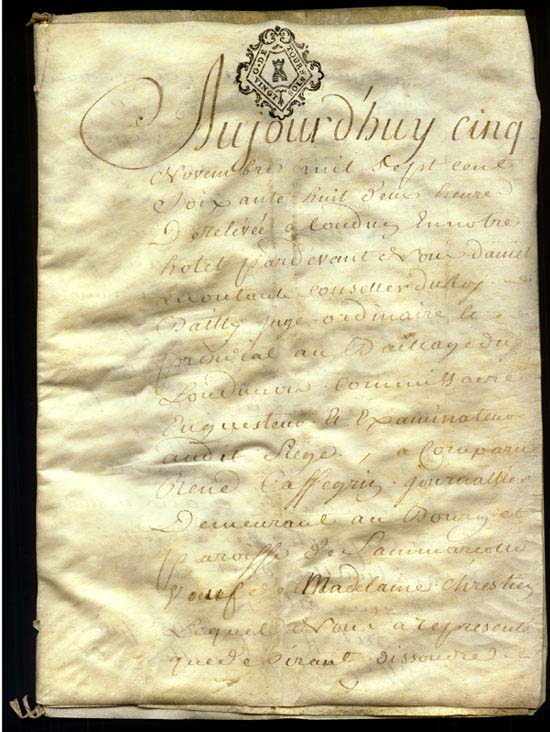 G. DE TOURS
VINGT 
Aujourd'huy cinq
Novembre mil sept cent
soixante huit deux heure
De relévée a Loudun En notre
hotel pardevant Nous daniel
montault conseiller du Roy
Bailly juge ordinaire le
principal au Bailliage du
Loudunois Commissaire
Enquesteur Et Examinateur
audit Siege, a Comparu
René journallier
Demeurant au Bourg et
paroisse de
Veuf de Madelaine Chrestien
Lequel Nous a representé
que desirant dissoudre